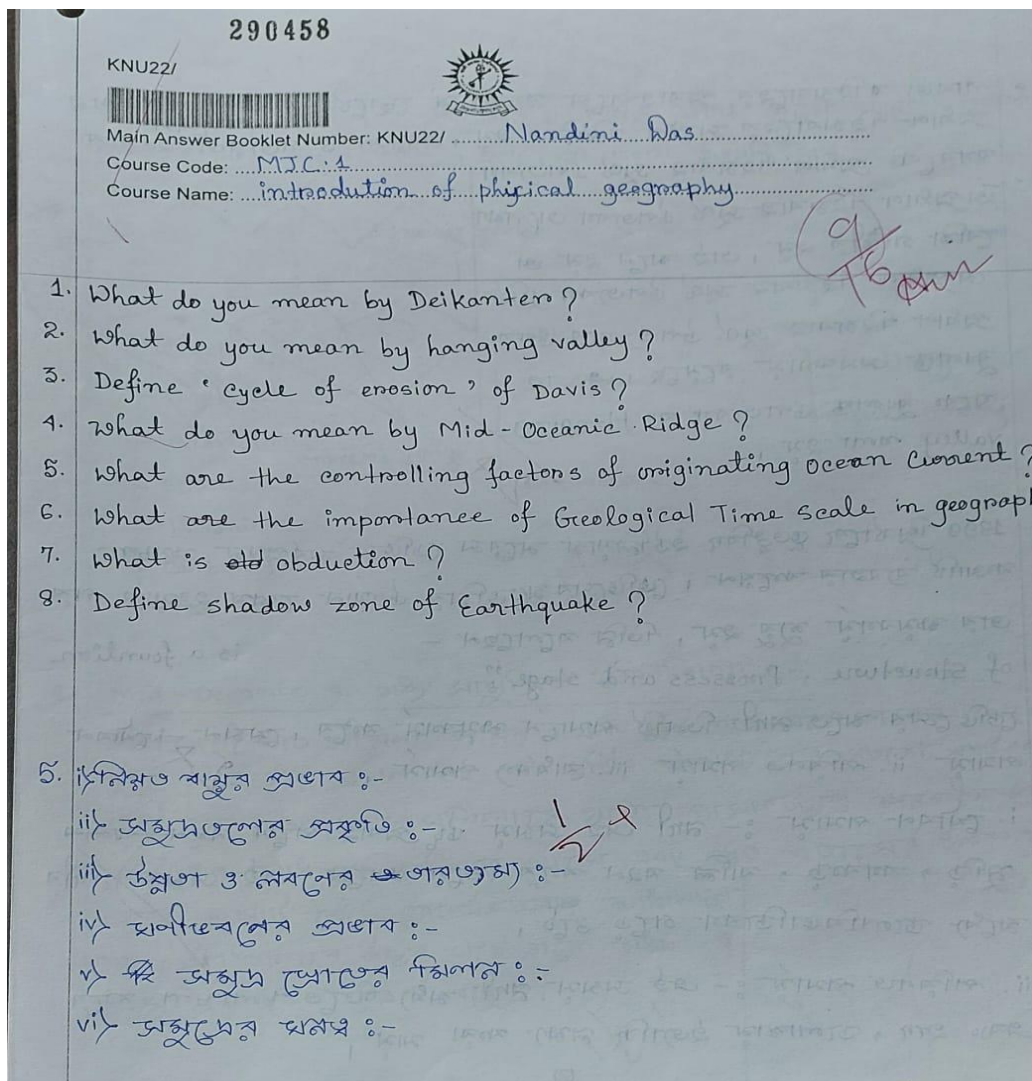 290458
KNU22/
Main Answer Booklet Number: KNU22/ ........ Nandini Das
Course Code: .... MJC.1
Course Name: ... introdution of phisical geography
9/16
1. What do you mean by Deikanten?
2. What do you mean by hanging valley?
3. Define 'Cycle of erosion' of Davis?
4. What do you mean by Mid-Oceanic Ridge?
5. What are the controlling factors of originating ocean Current?
6. What are the importance of Geological Time scale in geograph
7. What is obduction?
8. Define shadow zone of Earthquake?
5. i) নিয়ত বায়ুর প্রভাব :-
ii) সমুদ্রতলের প্রকৃতি :- 1/2
iii) উষ্ণতা ও লবনের তারতম্য :-
iv) ঘণীভবনের প্রভাব :-
v) সমুদ্র স্রোতের মিলন :-
vi) সমুদ্রের ঘনত্ব :-